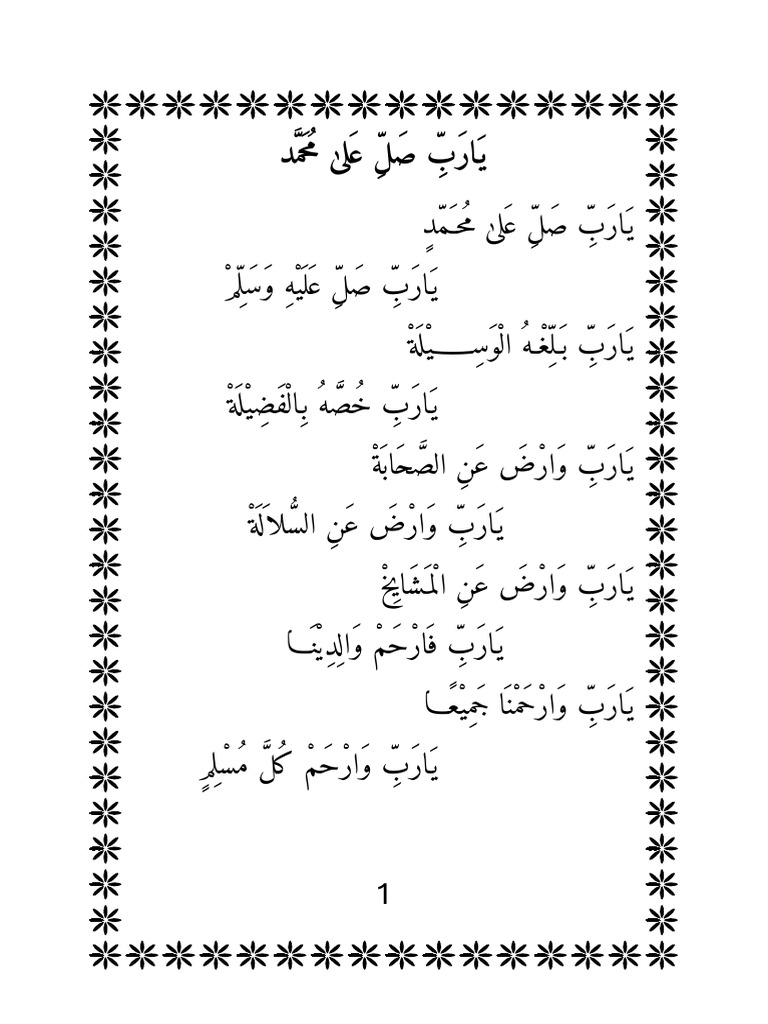 يَارَبِّ صَلِّ عَلىٰ مُحَمَّد
يَارَبِّ صَلِّ عَلىٰ مُحَـمّدٍ
يَارَبِّ صَلِّ عَلَيْهِ وَسَلِّمْ
يَارَبِّ بَـلِّغْـهُ الْوَسِـــــيْلَةْ
يَارَبِّ خُصَّهُ بِالْفَضِيْلَةْ
يَارَبِّ وَارْضَ عَنِ الصَّحَابَةْ
يَارَبِّ وَارْضَ عَنِ السُّلاَلَةْ
يَارَبِّ وَارْضَ عَنِ الْمَـشَايِخْ
يَارَبِّ فَارْحَمْ وَالِدِيْنَــا
يَارَبِّ وَارْحَمْنَا جَمِيْعًــا
يَارَبِّ وَارْحَمْ كُلَّ مُسْلِمٍ
1